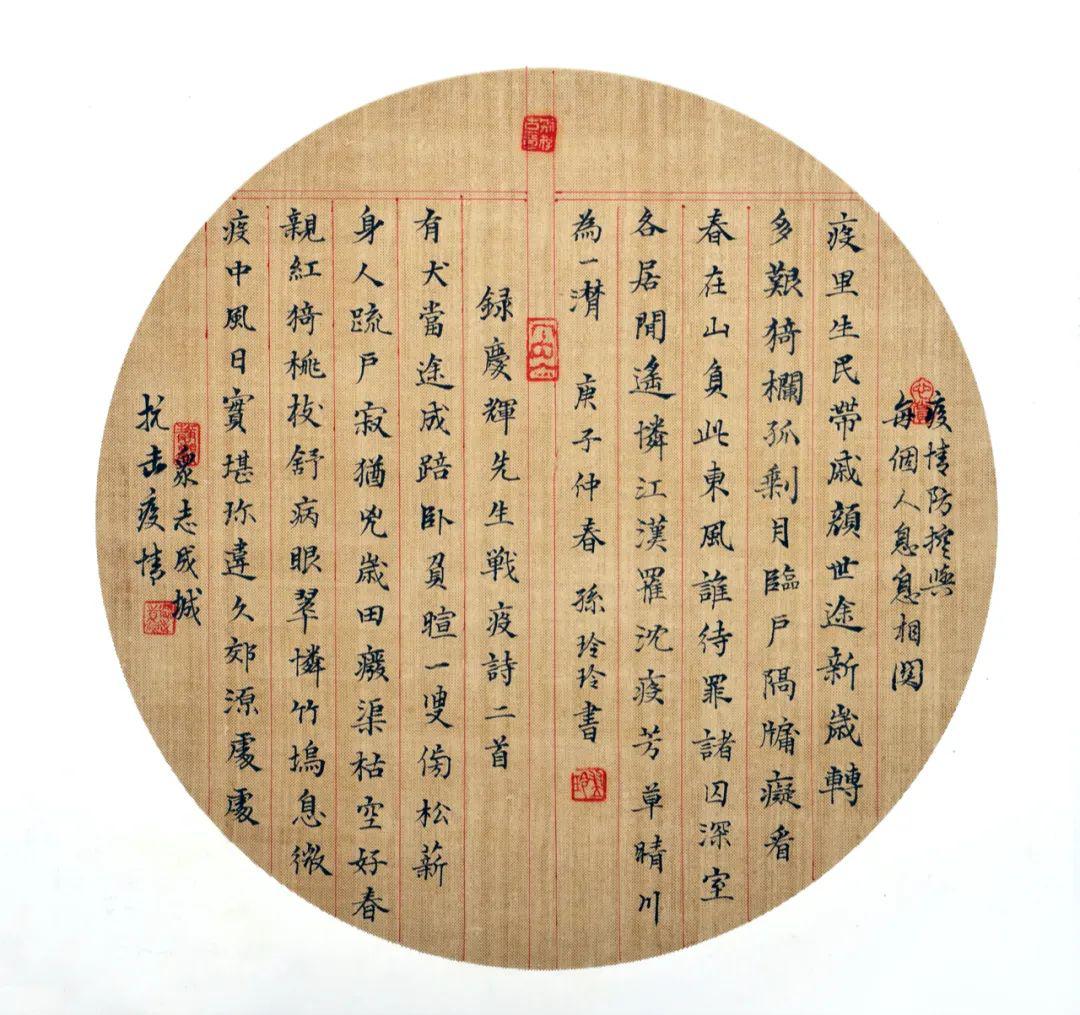 疫情防控與
每個人息息相関
疫里生民帶戚顔世途新歲轉
多艱猗欄孤剩月臨戶隔牗癡看
春在山負此東風誰待罪諸囚深室
各居閒遙憐江漢罹沈疫芳草晴川
為一潸 庚子仲春 孫玲玲書
録慶輝先生戰疫詩二首
有犬當途成踣卧負暄一叟傍松薪
身人疏戶寂猶兇歲田癈渠枯空好春
親紅猗桃枝舒病眼翠憐竹塢息微
疫中風日實堪珎違久郊源處處
衆志成城
抗击疫情